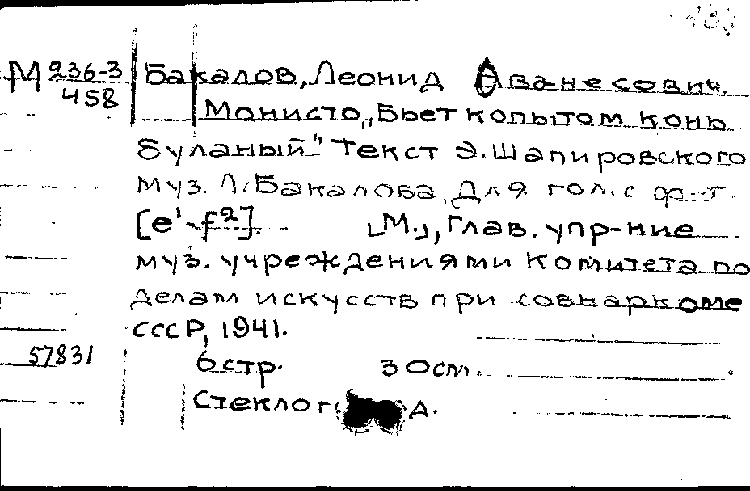 М 236-3 Бакалов, Леонид Аванесович.
458
Монисто „Бьет копытом конь
буланый" Текст Э. Шапировского
муз. Л. Бакалова. Для гол. с ф.-п.
[e¹-f²]. М., Глав. упр-ние
муз. учреждениями Комитета по
делам искусств при совнаркоме
СССР, 1941.
57831 6 стр. 30 см.